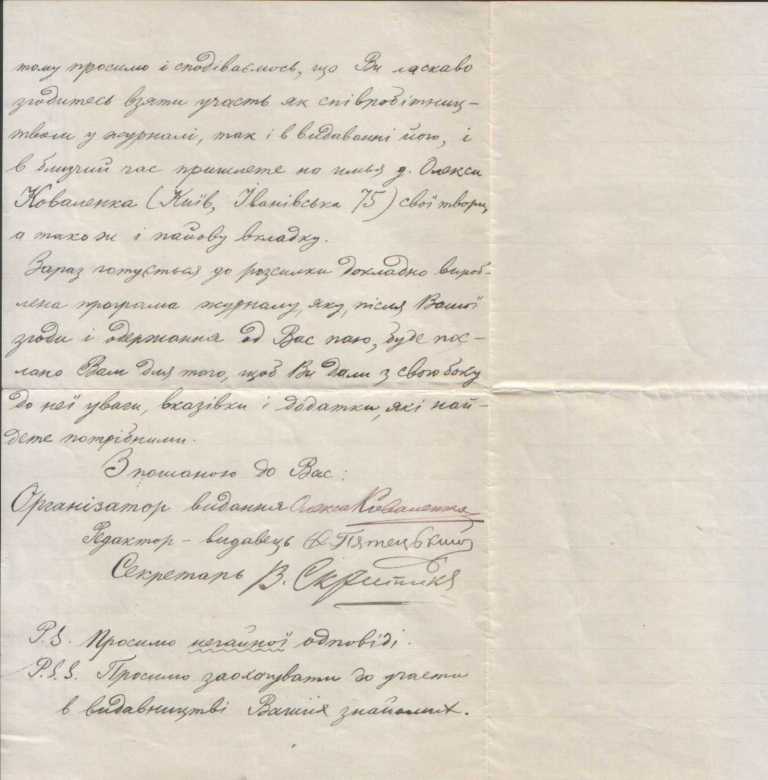 тому просимо і сподіваємось, що Ви ласкаво
згодитесь взяти участь як співробітниц-
твом у журналі, так і в видаванні його, і
в близчий час пришлете на имья д. Олекси
Коваленка (Київ, Іванівська 75) свої твори,
а також і пайову вкладку.
Зараз готується до розсилки докладно вироб-
лена програма журналу, яку, після Вашої
згоди і одержання од Вас паю, буде пос-
лано Вам для того, щоб Ви дали з свою боку
до неї уваги, вказівки і додатки, які най-
дете потрібними.
З пошаною до Вас:
Організатор видання Олекса Коваленко
Редактор - видавець
Секретарь В.
P.S. Просимо негайної одповіді.
P.S.S. Просимо заохочувати до участи
в видавництві Ваших знайомих.